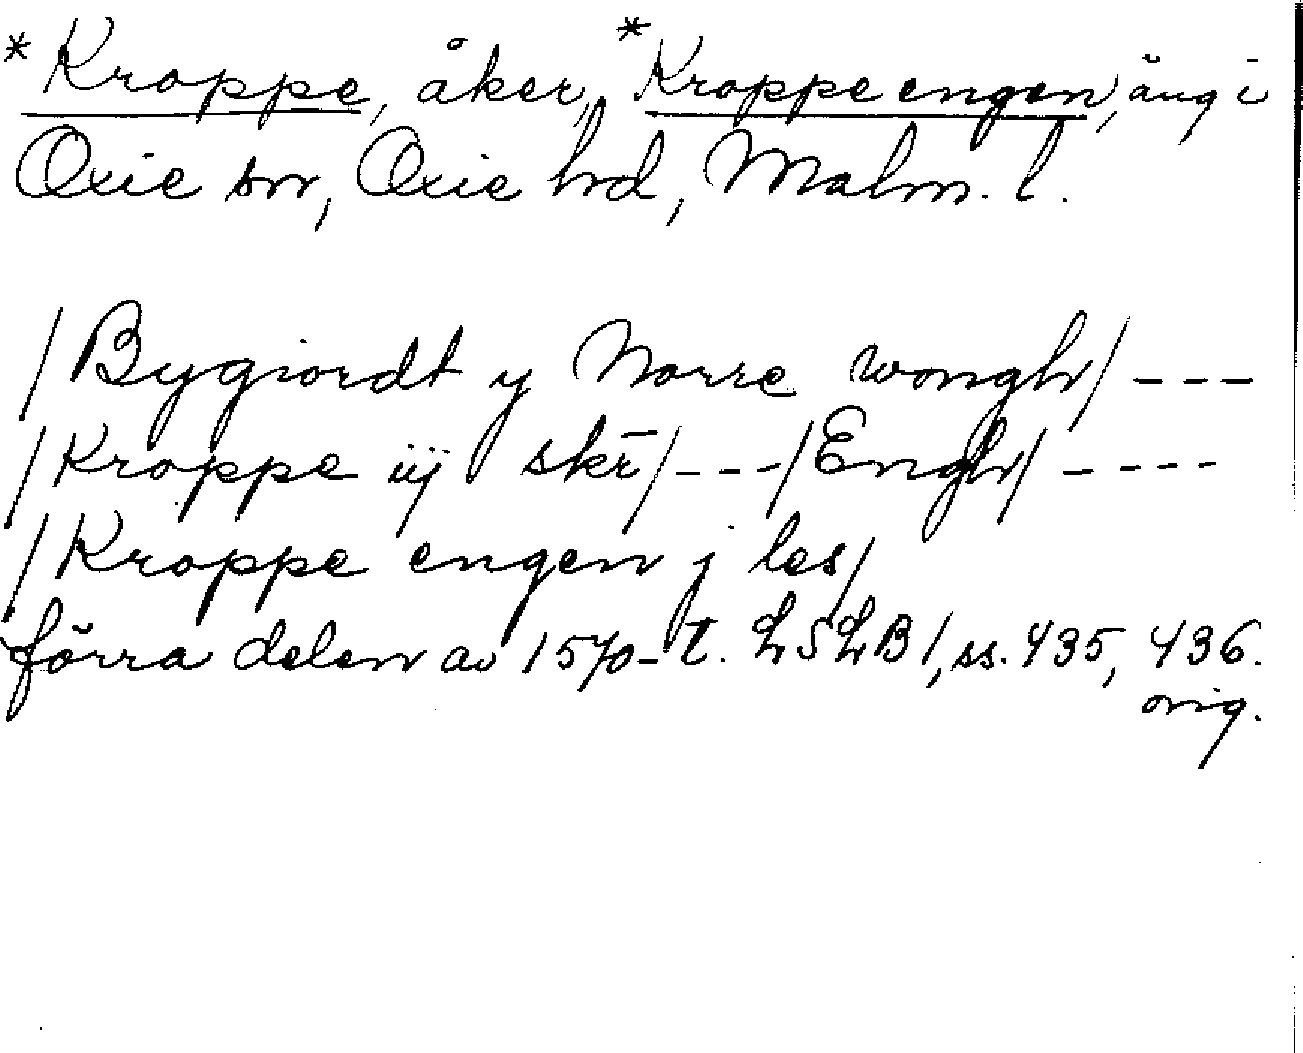 *Kroppe, åker, *Kroppe engen, äng i
Oxie sn, Oxie hd, Malm. l.
/Bygiordt y Norre wongh/ ---
/Kroppe iij skr̄/---/Engh/ ----
/Kroppe engen j les/
förra delen av 1570-t. LSLB 1, ss. 435, 436.
orig.